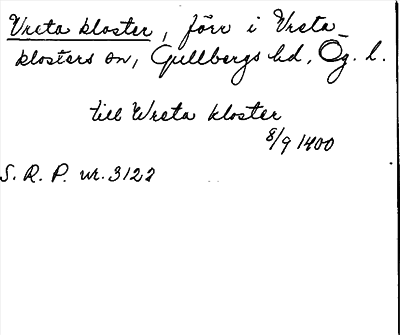 Vreta kloster, förr i Vreta
klosters sn, Gullbergs hd, Ög. l.
till Wreta kloster
8/9 1400
S. R. P. nr. 3122